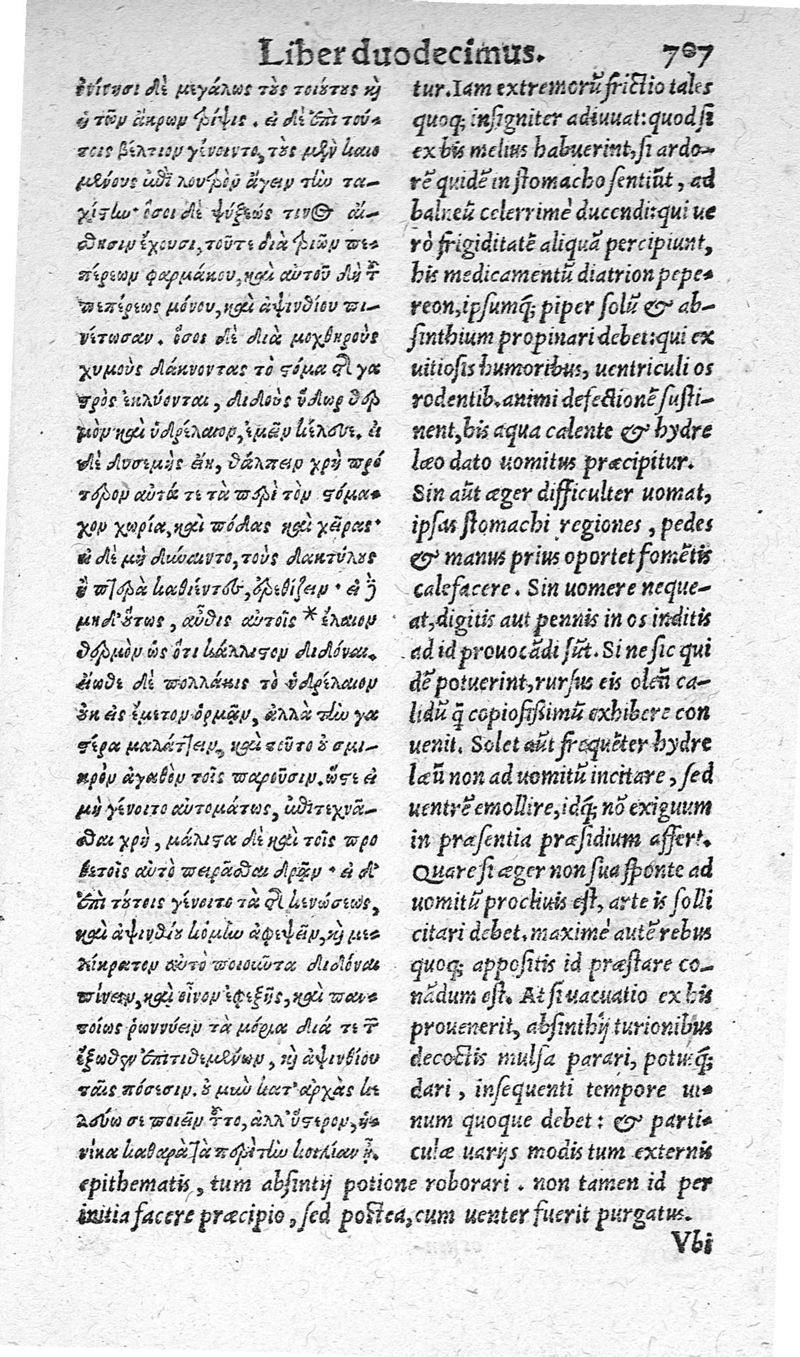 Liber duodecimus. 707
ὀνίνησι δὲ μεγάλως τοὺς τοιούτους καὶ
ἡ τῶν ἄκρων τρίψις. εἰ δὲ ἐπὶ τού-
τοις βέλτιον γένοιντο, τοὺς μὲν καιο
μένους ἐπὶ λουτρὸν ἄγειν τὴν τα-
χίστην· ὅσοι δὲ ψύξεώς τινος αἴ-
σθησιν ἔχουσι, τοῦτε διὰ τριῶν πε-
πέρεων φαρμάκου, καὶ αὐτοῦ δὴ τοῦ
πεπέρεως μόνου, καὶ ἀψινθίου πι-
νέτωσαν. ὅσοι δὲ διὰ μοχθηροὺς
χυμοὺς δάκνοντας τὸ στόμα τῆς γα
στρὸς ἐκλύονται, διδοὺς ὕδωρ θερ
μὸν καὶ ὑδρέλαιον, ἐμεῖν κέλευε. εἰ
δὲ δυσεμὴς εἴη, θάλπειν χρὴ πρό
τερον αὐτά τε τὰ περὶ τὸν στόμα-
χον χωρία, καὶ πόδας καὶ χεῖρας·
εἰ δὲ μὴ δύναιντο, τοὺς δακτύλους
ἢ πτερὰ καθιέντας, ἐρεθίζειν· εἰ δὲ
μηδ' οὕτως, αὖθις αὐτοῖς * ἔλαιον
θερμὸν ὡς ὅτι κάλλιστον διδόναι.
εἴωθε δὲ πολλάκις τὸ ὑδρέλαιον
οὐκ εἰς ἔμετον ὁρμᾷν, ἀλλὰ τὴν γα
στέρα μαλάττειν, καὶ τοῦτο οὐ σμι-
κρὸν ἀγαθὸν τοῖς παροῦσιν. ὥστε εἰ
μὴ γένοιτο αὐτομάτως, ἐπιτεχνᾶ-
σθαι χρὴ, μάλιστα δὲ καὶ τοῖς προ
θετοῖς αὐτὸ πειρᾶσθαι δρᾷν· εἰ δ'
ἐπὶ τούτοις γένοιτο τὰ τῆς κενώσεως,
καὶ ἀψινθίου κόμην ἀφεψεῖν, καὶ με-
λίκρατον αὐτὸ ποιοῦντα διδόναι
πίνειν, καὶ οἶνον ἐφεξῆς, καὶ παν-
τοίως ῥωννύειν τὰ μόρια διά τε τῶν
ἔξωθεν ἐπιτιθεμένων, καὶ ἀψινθίου
ταῖς πόσεσιν. οὐ μὴν κατ' ἀρχὰς κε
λεύω σε ποιεῖν τοῦτο, ἀλλ' ὕστερον, ἡ-
νίκα καθαρὰ τὰ περὶ τὴν κοιλίαν ᾖ.
tur. Iam extremorũ frictio tales
quoq; insigniter adiuuat: quod si
ex his melius habuerint, si ardo-
rẽ quidẽ in stomacho sentiũt, ad
balneũ celerrimè ducendi: qui ue
rò frigiditatẽ aliquã percipiunt,
his medicamentũ diatrion pepe-
reon, ipsumq; piper solũ & ab-
sinthium propinari debet: qui ex
uitiosis humoribus, uentriculi os
rodentib. animi defectionẽ susti-
nent, his aqua calente & hydre
læo dato uomitus præcipitur.
Sin aũt æger difficulter uomat,
ipsas stomachi regiones, pedes
& manus prius oportet fomẽtis
calefacere. Sin uomere neque-
at, digitis aut pennis in os inditis
ad id prouocãdi sũt. Si ne sic qui
dẽ potuerint, rursus eis oleũ ca-
lidũ q̃ copiosissimũ exhibere con
uenit. Solet aũt frequẽter hydre
læũ non ad uomitũ incitare, sed
uentrẽ emollire, idq; nõ exiguum
in præsentia præsidium affert.
Quare si æger non sua sponte ad
uomitũ procliuis est, arte is solli
citari debet. maximè autẽ rebus
quoq; appositis id præstare co-
nãdum est. At si uacuatio ex his
prouenerit, absinthij turionibus
decoctis mulsa parari, potuiq;
dari, insequenti tempore ui-
num quoque debet: & parti-
culæ uarijs modis tum externis
epithematis, tum absintij potione roborari. non tamen id per
initia facere præcipio, sed postea, cum uenter fuerit purgatus.
Vbi